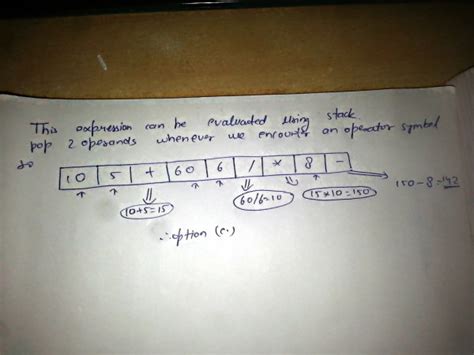 This expression can be evaluated using stack
pop 2 operands whenever we encounter an operator symbol
so
10 5 + 60 6 / * 8 -
10+5=15 60/6=10 15*10=150 150-8=142
∴ option (c.)